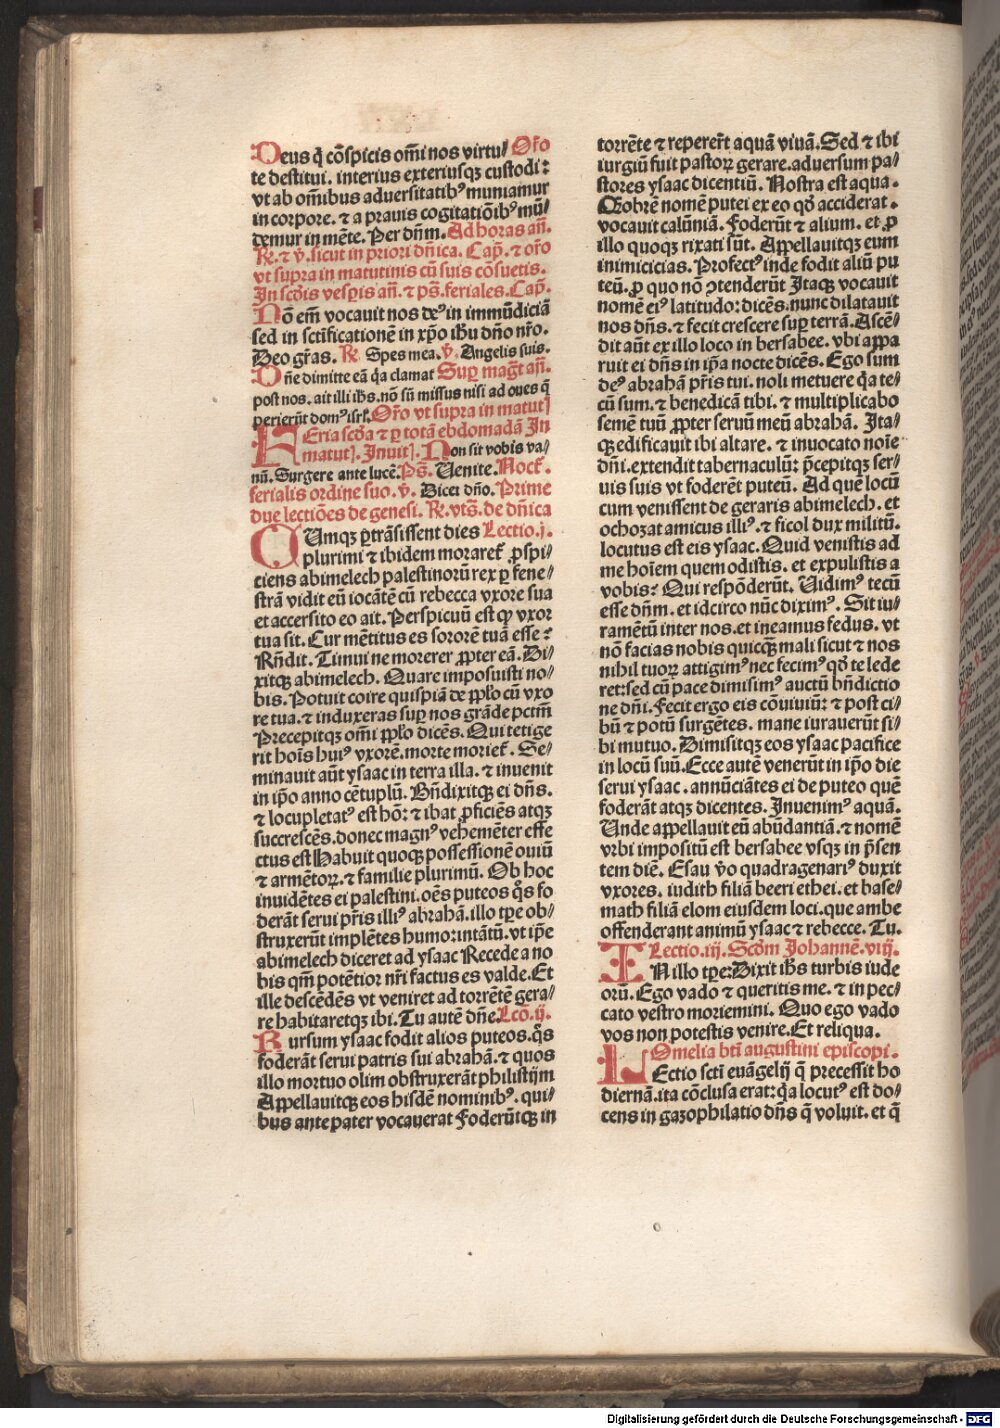 Deus q̄ cōspicis om̄i nos virtu/ Or̄o
te destitui. interius exteriusqꝫ custodi:
vt ab om̄ibus aduersitatibꝰ muniamur
in corpore. ⁊ a prauis cogitatiōibꝰ mū/
demur in mēte. Per dn̄m. Ad horas an̄.
R̄. ⁊ v̄. sicut in priori dn̄ica. Cap̄. ⁊ or̄o
vt supra in matutinis cū suis cōsuetis.
In scd̄is vesp̄is an̄. ⁊ ps̄. feriales. Cap̄.
Nō em̄ vocauit nos deꝰ in immūdiciā
sed in sctīficationē in xp̄o ih̄u dn̄o nr̄o.
Deo gr̄as. R̄. Spes mea. v̄. Angelis suis.
Dn̄e dimitte eā q̄a clamat Sup̄ magt̄ an̄.
post nos. ait illi ih̄s. nō sū missus nisi ad oues q̄
perierūt domꝰ isrl̄. Or̄o vt supra in matutꝭ
Feria scd̄a ⁊ ꝑ totā ebdomadā In
matutꝭ. Inuitꝭ. Non sit vobis va/
nū. Surgere ante lucē. Ps̄. Uenite. Noct̄.
ferialis ordine suo. v̄. Dicet dn̄o. Prime
due lectiōes de genesi. R̄. vts̄. de dn̄ica
CUmqꝫ ꝑtrāsissent dies Lectio.j.
plurimi ⁊ ibidem moraret̄ ꝓspi/
ciens abimelech palestinorū rex ꝑ fene/
strā vidit eū iocātē cū rebecca vxore sua
et accersito eo ait. Perspicuū est ꝙ vxor
tua sit. Cur mētitus es sororē tuā esse?
Rn̄dit. Timui ne morerer ꝓpter eā. Di/
xitqꝫ abimelech. Quare imposuisti no/
bis. Potuit coire quispiā de ppl̄o cū vxo
re tua. ⁊ induxeras sup̄ nos grāde pctm̄
Precepitqꝫ om̄i ppl̄o dicēs. Qui tetige
rit hoīs huiꝰ vxorē. morte moriet̄. Se/
minauit aūt ysaac in terra illa. ⁊ inuenit
in ip̄o anno cētuplū. Bn̄dixitqꝫ ei dn̄s.
⁊ locupletatꝰ est hō: ⁊ ibat ꝓficiēs atqꝫ
succrescēs. donec magnꝰ vehemēter effe
ctus est Habuit quoqꝫ possessionē ouiū
⁊ armētoꝝ. ⁊ familie plurimū. Ob hoc
inuidētes ei palestini. oēs puteos q̄s fo
derāt serui pr̄is illiꝰ abrahā. illo tꝑe ob/
struxerūt implētes humo: intātū. vt ip̄e
abimelech diceret ad ysaac Recede a no
bis qm̄ potētior nr̄i factus es valde. Et
ille descēdēs vt veniret ad torrētē gera/
re habitaretqꝫ ibi. Tu autē dn̄e. Lcō.ij.
Rursum ysaac fodit alios puteos. q̄s
foderāt serui patris sui abrahā. ⁊ quos
illo mortuo olim obstruxerāt philistijm
Appellauitqꝫ eos hisdē nominibꝰ. qui/
bus ante pater vocauerat Foderūtqꝫ in
torrēte ⁊ reperer̄t aquā viuā. Sed ⁊ ibi
iurgiū fuit pastoꝝ gerare. aduersum pa/
stores ysaac dicentiū. Nostra est aqua.
Quobrē nomē putei ex eo qd̄ acciderat.
vocauit calūniā. Foderūt ⁊ alium. et ꝓ
illo quoqꝫ rixati sūt. Appellauitqꝫ eum
inimicicias. Profectꝰ inde fodit aliū pu
teū. ꝓ quo nō ꝯtenderūt Itaqꝫ vocauit
nomē eiꝰ latitudo: dicēs. nunc dilatauit
nos dn̄s. ⁊ fecit crescere sup̄ terrā. Ascē/
dit aūt ex illo loco in bersabee. vbi appa
ruit ei dn̄s in ip̄a nocte dicēs. Ego sum
deꝰ abrahā pr̄is tui. noli metuere q̄a te/
cū sum. ⁊ benedicā tibi. ⁊ multiplicabo
semē tuū ꝓpter seruū meū abrahā. Ita/
qꝫ edificauit ibi altare. ⁊ inuocato noīe
dn̄i. extendit tabernaculū: p̄cepitqꝫ ser/
uis suis vt foderēt puteū. Ad quē locū
cum venissent de geraris abimelech. et
ochozat amicus illiꝰ. ⁊ ficol dux militū.
locutus est eis ysaac. Quid venistis ad
me hoīem quem odistis. et expulistis a
vobis? Qui respōderūt. Uidimꝰ tecū
esse dn̄m. et idcirco nūc diximꝰ. Sit iu/
ramētū inter nos. et ineamus fedus. vt
nō facias nobis quicqꝫ mali sicut ⁊ nos
nihil tuoꝝ attigimꝰ nec fecimꝰ qd̄ te lede
ret: sed cū pace dimisimꝰ auctū bn̄dictio
ne dn̄i. Fecit ergo eis cōuiuiū: ⁊ post ci/
bū ⁊ potū surgētes. mane iurauerūt si/
bi mutuo. Dimisitqꝫ eos ysaac pacifice
in locū suū. Ecce autē venerūt in ip̄o die
serui ysaac. annūciātes ei de puteo quē
foderāt atqꝫ dicentes. Inuenimꝰ aquā.
Unde appellauit eū abūdantiā. ⁊ nomē
vrbi impositū est bersabee vsqꝫ in p̄sen
tem diē. Esau v̄o quadragenariꝰ duxit
vxores. iudith filiā beeri ethei. et base/
math filiā elom eiusdem loci. que ambe
offenderant animū ysaac ⁊ rebecce. Tu.
Lectio.iij. Scd̄m Johannē.viij.
IN illo tꝑe: Dixit ih̄s turbis iude
orū. Ego vado ⁊ queritis me. ⁊ in pec/
cato vestro moriemini. Quo ego vado
vos non potestis venire. Et reliqua.
Omelia bt̄i augustini episcopi.
LEctio sct̄i euāgelij q̄ precessit ho
diernā. ita cōclusa erat: q̄a locutꝰ est do/
cens in gazophilatio dn̄s q̄ voluit. et q̄
Digitalisierung gefördert durch die Deutsche Forschungsgemeinschaft - DFG